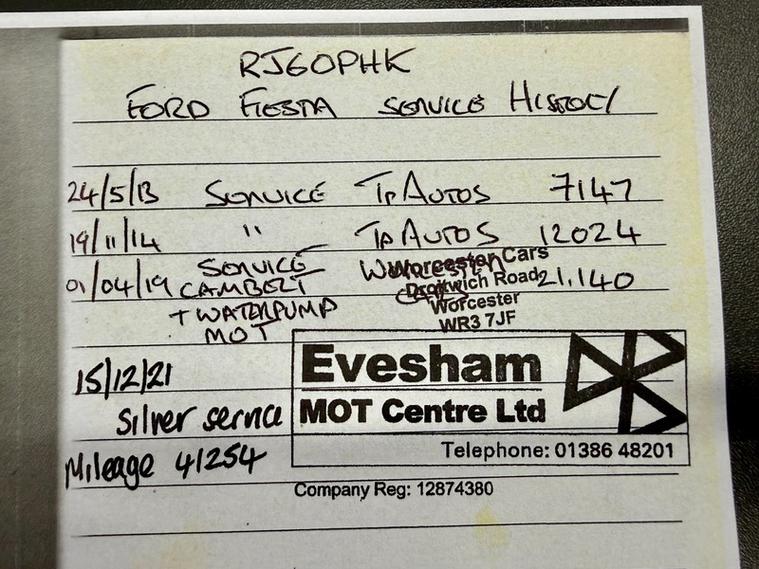 RJ60PHK
FORD FIESTA SERVICE HISTORY
24/5/13 SERVICE TP AUTOS 7147
19/11/14 " TP AUTOS 12024
01/04/19 SERVICE Worcester Cars
CAMBELT Droitwich Road 21,140
+ WATERPUMP Worcester
MOT WR3 7JF
15/12/21
Silver service
Mileage 41254
Evesham
MOT Centre Ltd
Telephone: 01386 48201
Company Reg: 12874380